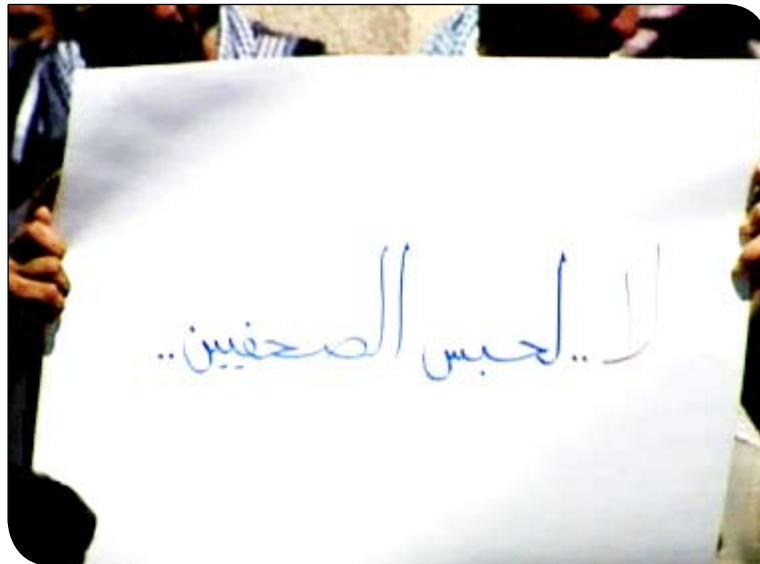 لا.. لحبس الصحفيين..